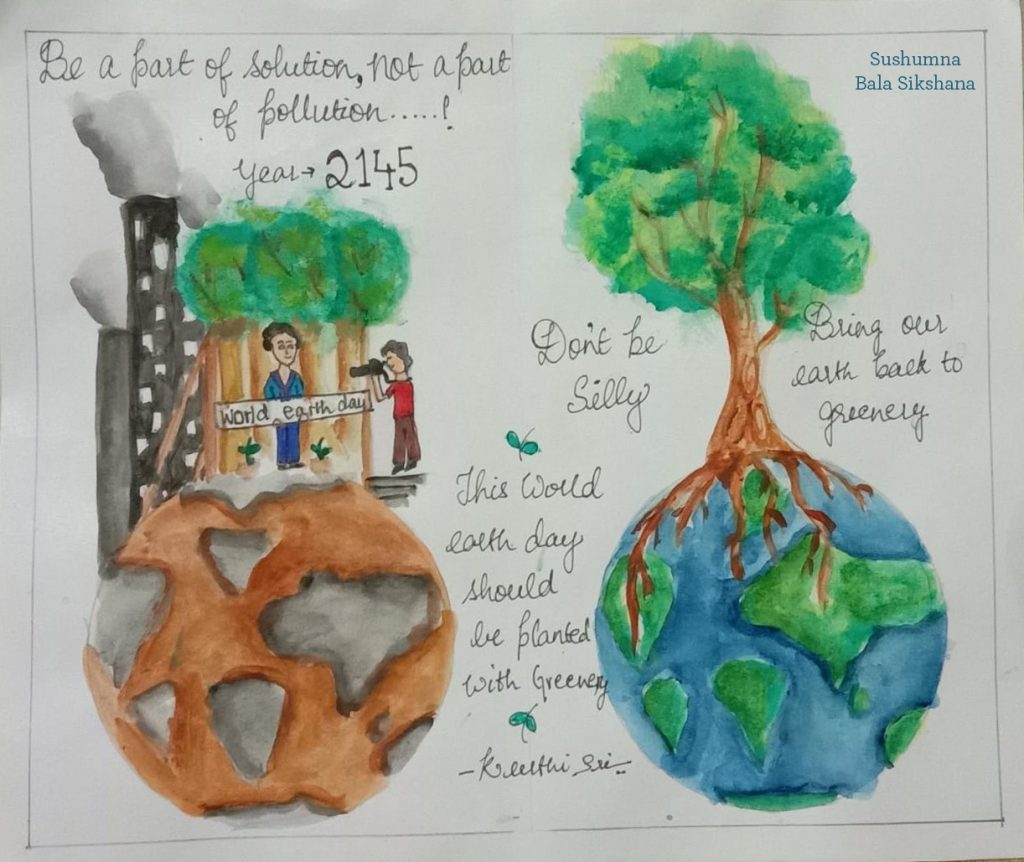 Be a part of solution, not a part
of pollution.....!
Year→ 2145
World earth day
Sushumna
Bala Sikshana
Don't be
Silly
Bring our
earth back to
greenery
This World
earth day
should
be planted
with Greenery
-Keerthi Sri